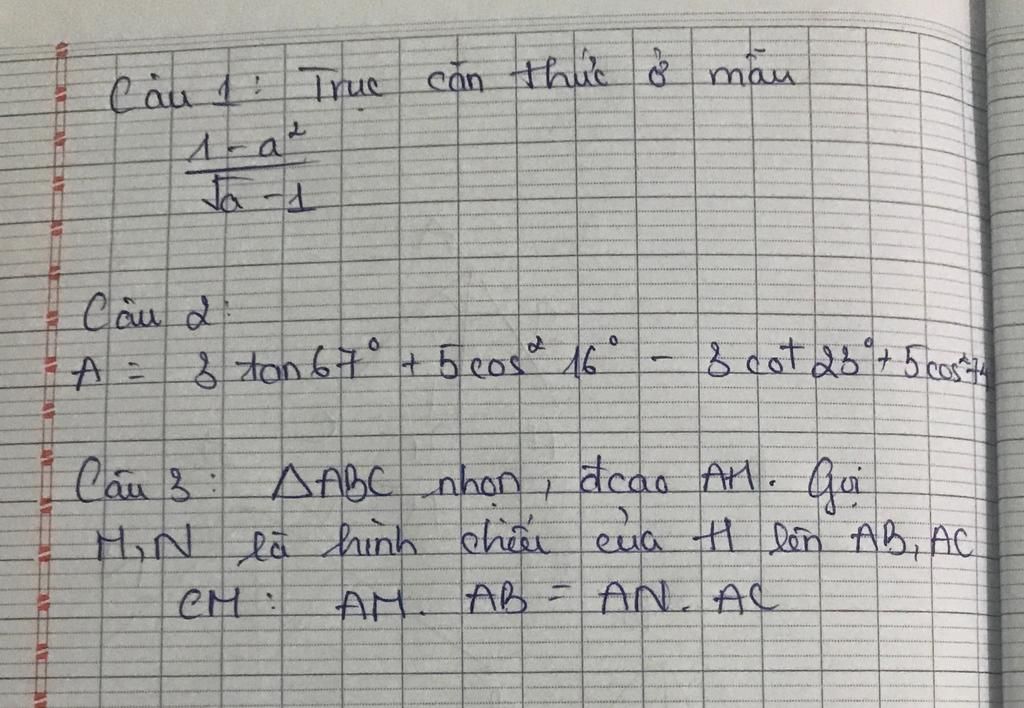 Câu 1: Trục căn thức ở mẫu
1 - a²
√a - 1
Câu 2:
A = 3 tan 67° + 5 cos² 16° - 3 cot 23° + 5 cos² 74
Câu 3: ΔABC nhọn, đcao AH. Gọi
M, N là hình chiếu của H lên AB, AC
CM: AM. AB = AN. AC